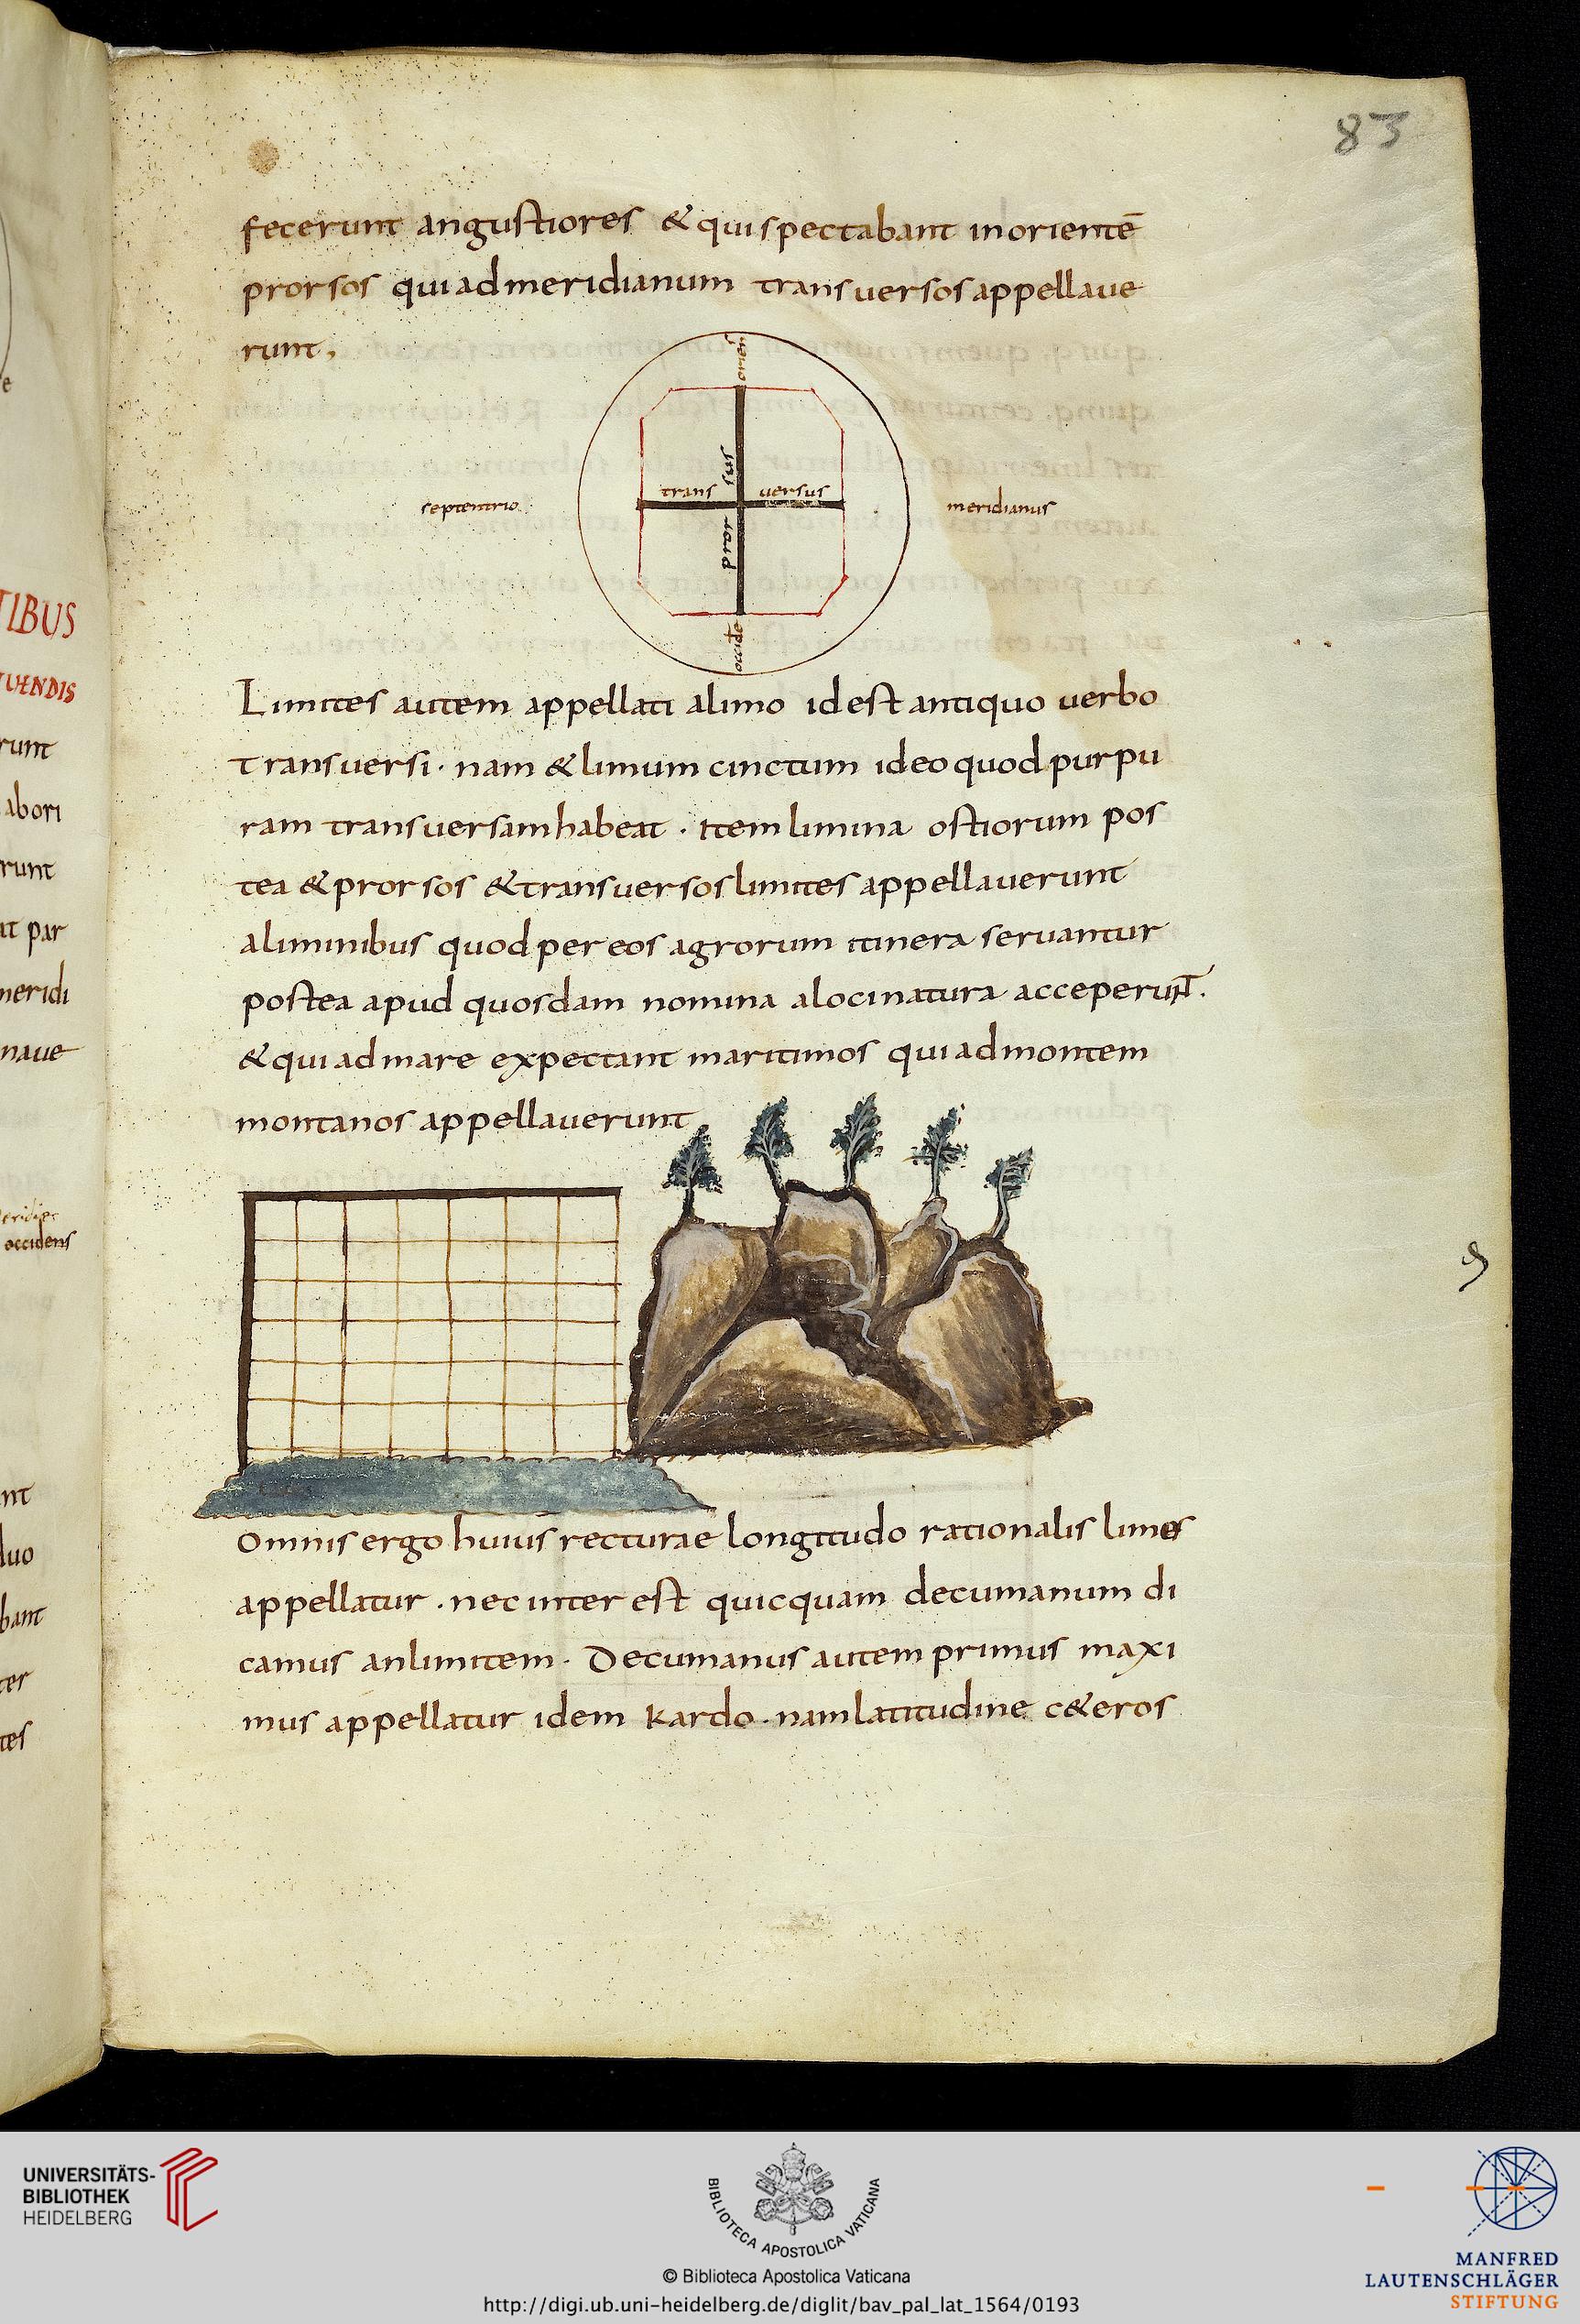 83
fecerunt angustiores & qui spectabant in orientē
prorsos qui ad meridianum transversos appellaue
runt,
orien̄
trans versus
prorsus
septentrio
meridianus
occidē
Limites autem appellati alimo id est antiquo uerbo
transuersi · nam & limum cinctum ideo quod purpu
ram transuersam habeat · item limina ostiorum pos
tea & prorsos & transuersos limites appellauerunt
aliminibus quod per eos agrorum itinera seruantur
postea apud quosdam nomina aloci natura acceperunt.
& qui ad mare expectant maritimos qui ad montem
montanos appellauerunt
Omnis ergo huius recturae longitudo rationalis limes
appellatur · nec inter est quicquam decumanum di
camus an limitem · Decumanus autem primus maxi
mus appellatur idem kardo · nam latitudine c&eros
TIBUS
TUENDIS
runt
abori
runt
at par
meridi
naue
occidens
nt
duo
bant
ter
tes
UNIVERSITÄTS-
BIBLIOTHEK
HEIDELBERG
BIBLIOTECA APOSTOLICA VATICANA
© Biblioteca Apostolica Vaticana
http://digi.ub.uni-heidelberg.de/diglit/bav_pal_lat_1564/0193
MANFRED
LAUTENSCHLÄGER
STIFTUNG